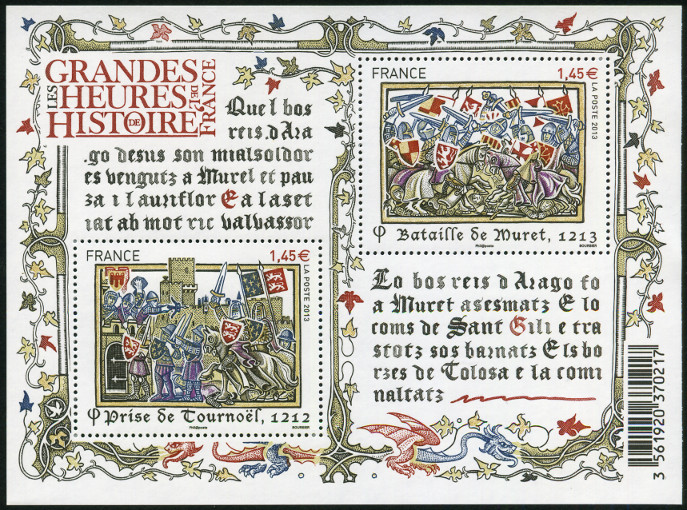 LES GRANDES
HEURES
DE L'
HISTOIRE
DE FRANCE
Quel bos
reis d'Ara
go desus son mialsoldor
es vengutz a Murel et pau
za i lauriflor E a la set
iat ab mot ric valvassor
FRANCE 1,45€
LA POSTE 2013
φ Bataille de Muret, 1213
Phil@poste BOURSIER
FRANCE 1,45€
LA POSTE 2013
φ Prise de Tournoël, 1212
Phil@poste
Lo bos reis d'Arago fo
a Muret asesmatz E lo
coms de Sant Gili e tra
stotz sos barnatz Els bor
zes de Tolosa e la comi
naltatz
3 561920 370217